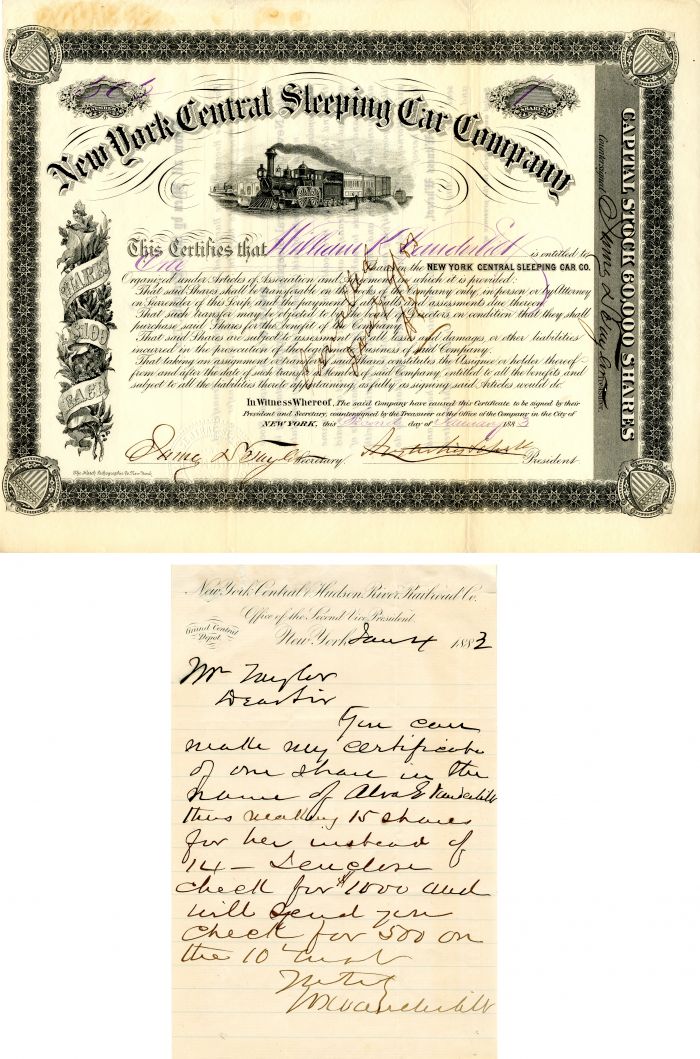 505
1
SHARES
New York Central Sleeping Car Company
CAPITAL STOCK 60,000 SHARES
Countersigned
Treasurer
SHARES
$100
EACH
This Certifies that William K Vanderbilt is entitled to
One Shares in the NEW YORK CENTRAL SLEEPING CAR CO.
Organized under Articles of Association and Agreement, in which it is provided:
That said Shares shall be transferable on the books of the Company only, in person or by Attorney
on Surrender of this Scrip and the payment of all assessments due thereon
That such transfer may be objected to by the Directors on condition that they shall
purchase said Shares for the benefit of the Company.
That said Shares are subject to assessment for all losses and damages, or other liabilities
incurred in the prosecution of the regular business of said Company.
That taking an assignment or transfer of said Shares constitutes the assignee or holder thereof
from and after the date of such transfer a Member of said Company, entitled to all the benefits and
subject to all the liabilities thereto appertaining, as fully as signing said Articles would do.
In Witness Whereof, The said Company have caused this Certificate to be signed by their
President and Secretary, countersigned by the Treasurer at the Office of the Company in the City of
NEW YORK, this Second day of January 1883
Secretary.
President
The Hatch Lithographic Co. New York.
New York Central & Hudson River Railroad Co.
Office of the Second Vice President.
Grand Central Depot.
New York Jan 4 1883
Mr Taylor
Dear Sir
You can
make my certificate
of one share in the
name of Alva E Vanderbilt
thus making 15 shares
for her instead of
14 - I enclose
check for $1000 and
will send you
check for 500 on
the 10 inst
WKVanderbilt